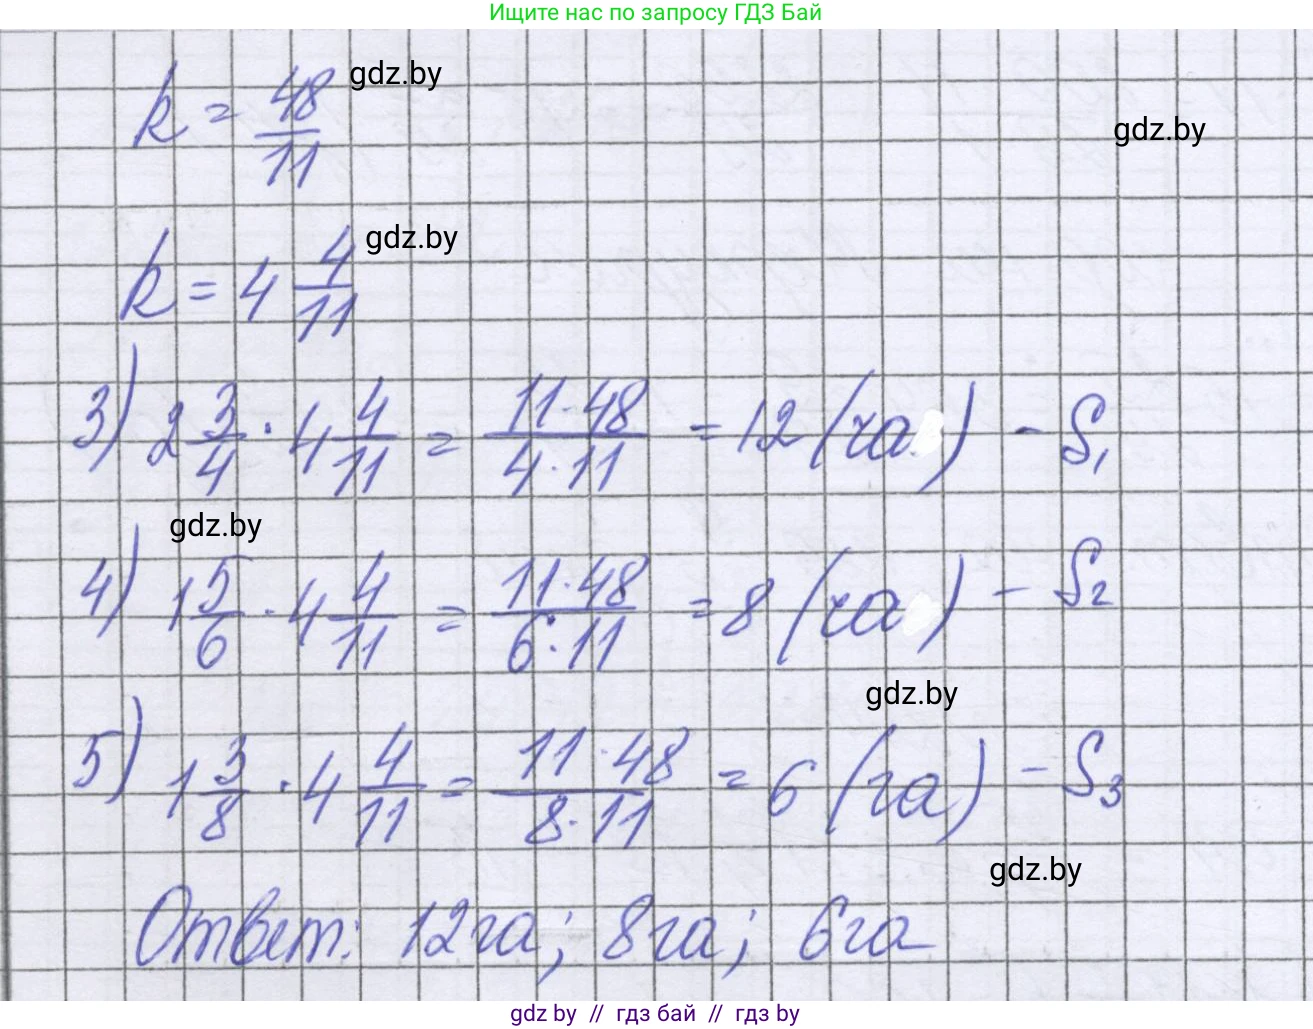 Ищите нас по запросу ГДЗ Бай
k = 48/11
gdz.by
gdz.by
k = 4 4/11
gdz.by
3) 2 3/4 · 4 4/11 = 11·48/4·11 = 12 (га) - S₁
gdz.by
4) 1 5/6 · 4 4/11 = 11·48/6·11 = 8 (га) - S₂
gdz.by
5) 1 3/8 · 4 4/11 = 11·48/8·11 = 6 (га) - S₃
gdz.by
Ответ: 12га; 8га; 6га
gdz by // гдз бай // гдз by